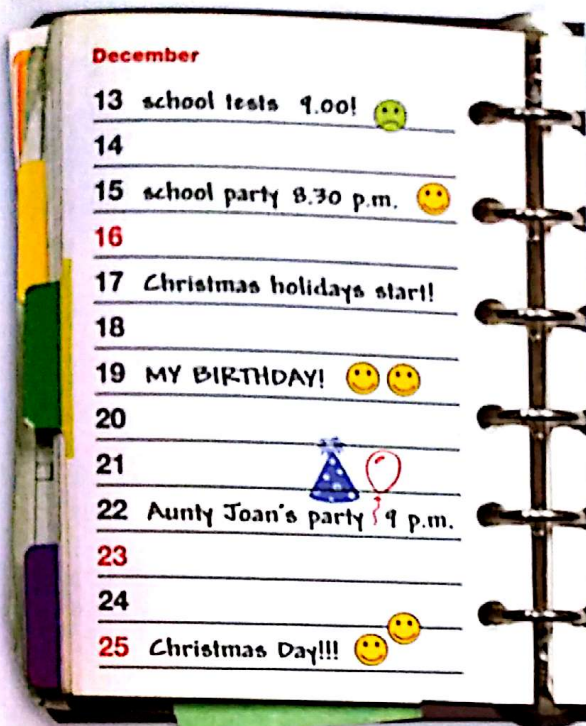 December
13 school tests 9.00!
14
15 school party 8.30 p.m.
16
17 Christmas holidays start!
18
19 MY BIRTHDAY!
20
21
22 Aunty Joan's party 9 p.m.
23
24
25 Christmas Day!!!